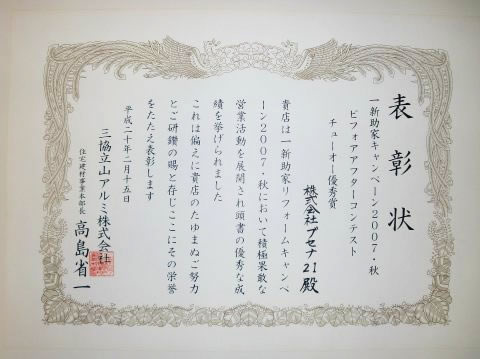 表彰状
一新助家キャンペーン2007・秋
ビフォアアフターコンテスト
チューオー優秀賞
株式会社ブセナ21殿
貴店は一新助家リフォームキャンペ
ーン2007・秋において積極果敢な
営業活動を展開され頭書の優秀な成
績を挙げられました
これは偏えに貴店のたゆまぬご努力
とご研鑽の賜と存じここにその栄誉
をたたえ表彰します
平成二十年二月十五日
三協立山アルミ株式会社
住宅建材事業本部長 高島省一